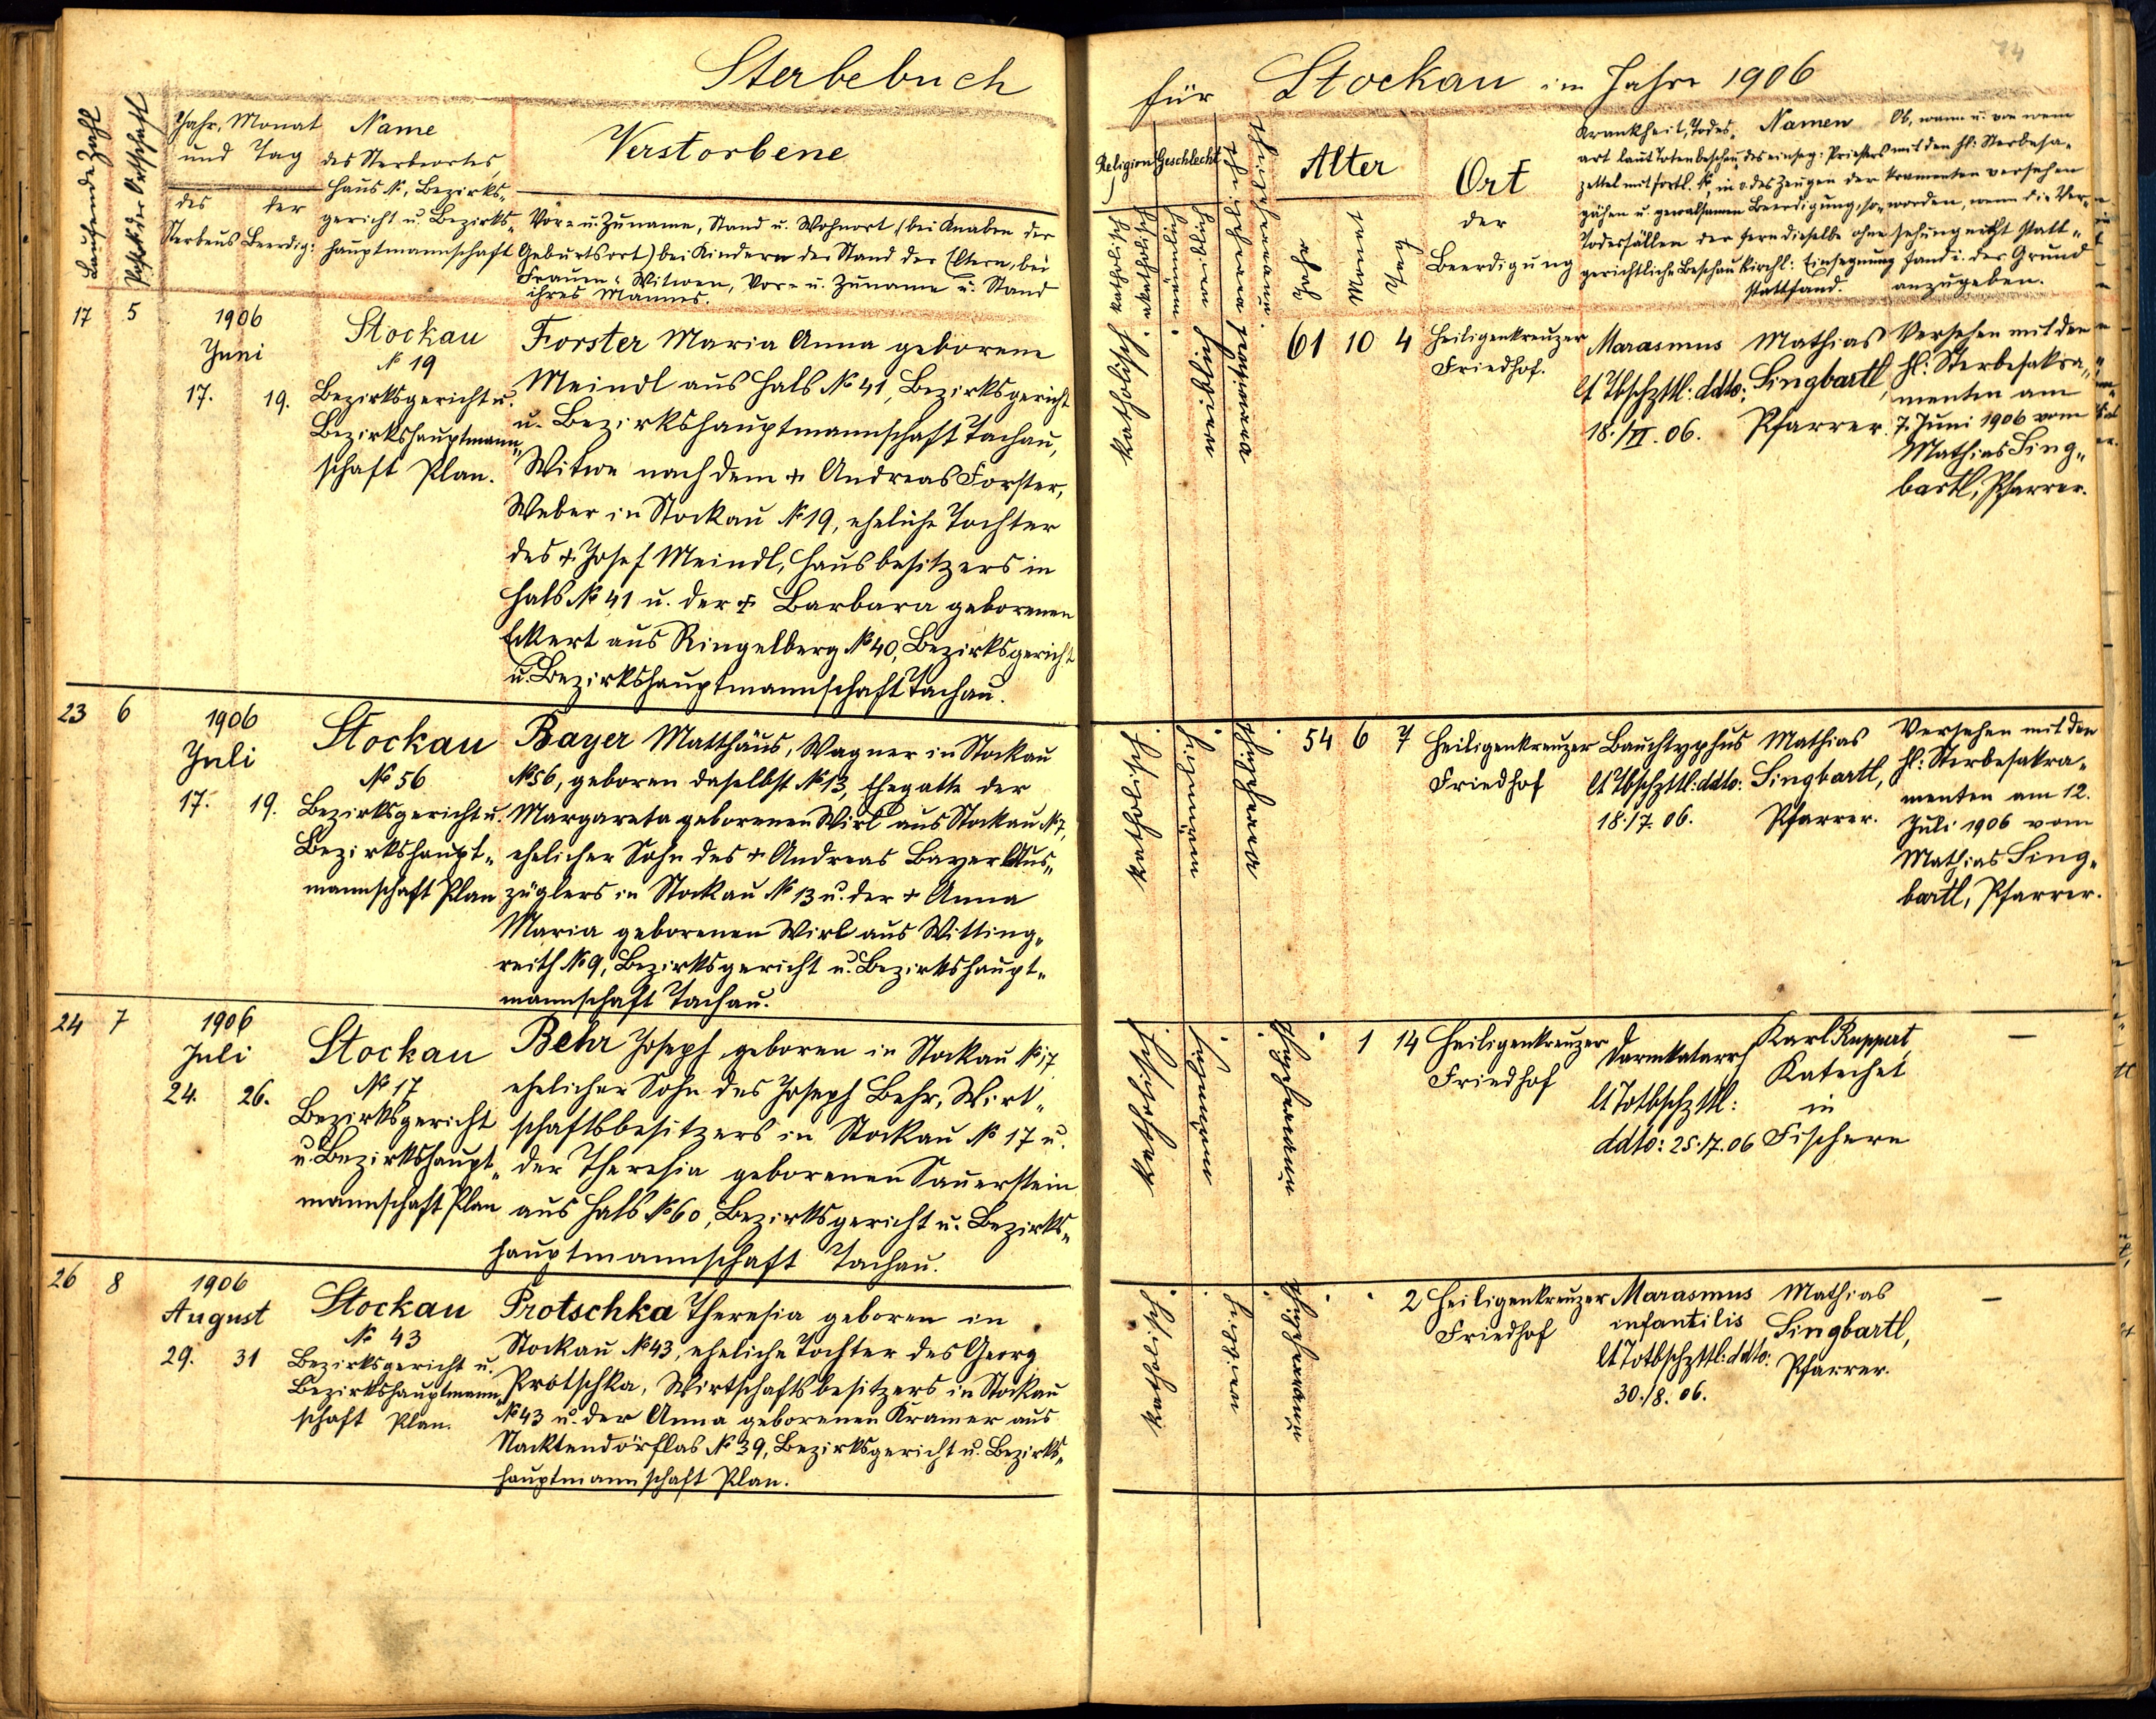 Sterbebuch
für Stockau im Jahre 1906
74
Laufende Zahl
Jahr, Monat
und Tag
des
Sterbens
der
Beerdig:
Name
des Sterbeortes,
Haus №, Bezirks-
gericht u. Bezirks-
hauptmannschaft
Verstorbene
Vor- u. Zuname, Stand u. Wohnort (bei Knaben der
Geburtsort) bei Kindern der Stand der Eltern, bei
Frauen u. Witwen, Vor- u. Zuname u. Stand
ihres Mannes.
Religion
katholisch
akatholisch
Geschlecht
männlich
weiblich
Alter
Jahr
Monat
Tag
Ort
der
Beerdigung
Krankheit, Todes-
art laut Totenbeschau-
zettel mit fortl. №, in
gähen u. gewaltsamen
Todesfällen der
gerichtliche Beschau
Namen
des einseg: Priesters
o. des Zeugen der
Beerdigung, so-
fern dieselbe ohne
kirchl: Einsegnung
stattfand.
Ob, wann u. von wem
mit den hl: Sterbesa-
kramenten versehen
worden, wenn die Ver-
sehung nicht statt-
fand u. der Grund
anzugeben.
17 5
1906
Juni
17. 19.
Stockau
№ 19
Bezirksgericht u.
Bezirkshauptmann-
schaft Plan.
Forster Maria Anna geborene
Meindl aus Hals № 41, Bezirksgericht
u. Bezirkshauptmannschaft Tachau,
Witwe nach dem + Andreas Forster,
Weber in Stockau № 19, eheliche Tochter
des + Josef Meindl, Hausbesitzers in
Hals № 41 u. der + Barbara geborenen
Eckert aus Ringelberg № 40, Bezirksgericht
u. Bezirkshauptmannschaft Tachau.
katholisch
weiblich
verwitwet
61 10 4
Heiligenkreuzer
Friedhof.
Marasmus
lt Tbschzttl: ddto:
18./VI. 06.
Mathias
Singbartl,
Pfarrer.
Versehen mit den
hl: Sterbesakra-
menten am
7. Juni 1906 vom
Mathias Sing-
bartl, Pfarrer.
23 6
1906
Juli
17. 19.
Stockau
№ 56
Bezirksgericht u.
Bezirkshaupt-
mannschaft Plan
Bayer Matthäus, Wagner in Stockau
№ 56, geboren daselbst № 13, Ehegatte der
Margareta geborenen Wirl aus Stockau № 7,
ehelicher Sohn des + Andreas Bayer Aus-
züglers in Stockau № 13 u. der + Anna
Maria geborenen Wirl aus Witting-
reith № 9, Bezirksgericht u. Bezirkshaupt-
mannschaft Tachau.
katholisch
männlich
verheiratet
54 6 7
Heiligenkreuzer
Friedhof
Bauchtyphus
lt Tbschzttl: ddto:
18./7. 06.
Mathias
Singbartl,
Pfarrer.
Versehen mit den
hl: Sterbesakra-
menten am 12.
Juli 1906 vom
Mathias Sing-
bartl, Pfarrer.
24 7
1906
Juli
24. 26.
Stockau
№ 17
Bezirksgericht
u. Bezirkshaupt-
mannschaft Plan
Behr Joseph geboren in Stockau № 17
ehelicher Sohn des Joseph Behr, Wirt-
schaftsbesitzers in Stockau № 17 u.
der Theresia geborenen Sauerstein
aus Hals № 60, Bezirksgericht u. Bezirks-
hauptmannschaft Tachau.
katholisch
männlich
unverheiratet
1 14
Heiligenkreuzer
Friedhof
Darmkatarrh
lt Totbschzttl:
ddto: 25./7. 06
Karl Ruppert,
Katechet
in
Fischern
—
26 8
1906
August
29. 31
Stockau
№ 43
Bezirksgericht u.
Bezirkshauptmann-
schaft Plan.
Protschka Theresia geboren in
Stockau № 43, eheliche Tochter des Georg
Protschka, Wirtschaftsbesitzers in Stockau
№ 43 u. der Anna geborenen Kramer aus
Nacktendörflas № 39, Bezirksgericht u. Bezirks-
hauptmannschaft Plan.
katholisch
weiblich
unverheiratet
2
Heiligenkreuzer
Friedhof
Marasmus
infantilis
lt Totbschzttl: ddto:
30./8. 06.
Mathias
Singbartl,
Pfarrer.
—